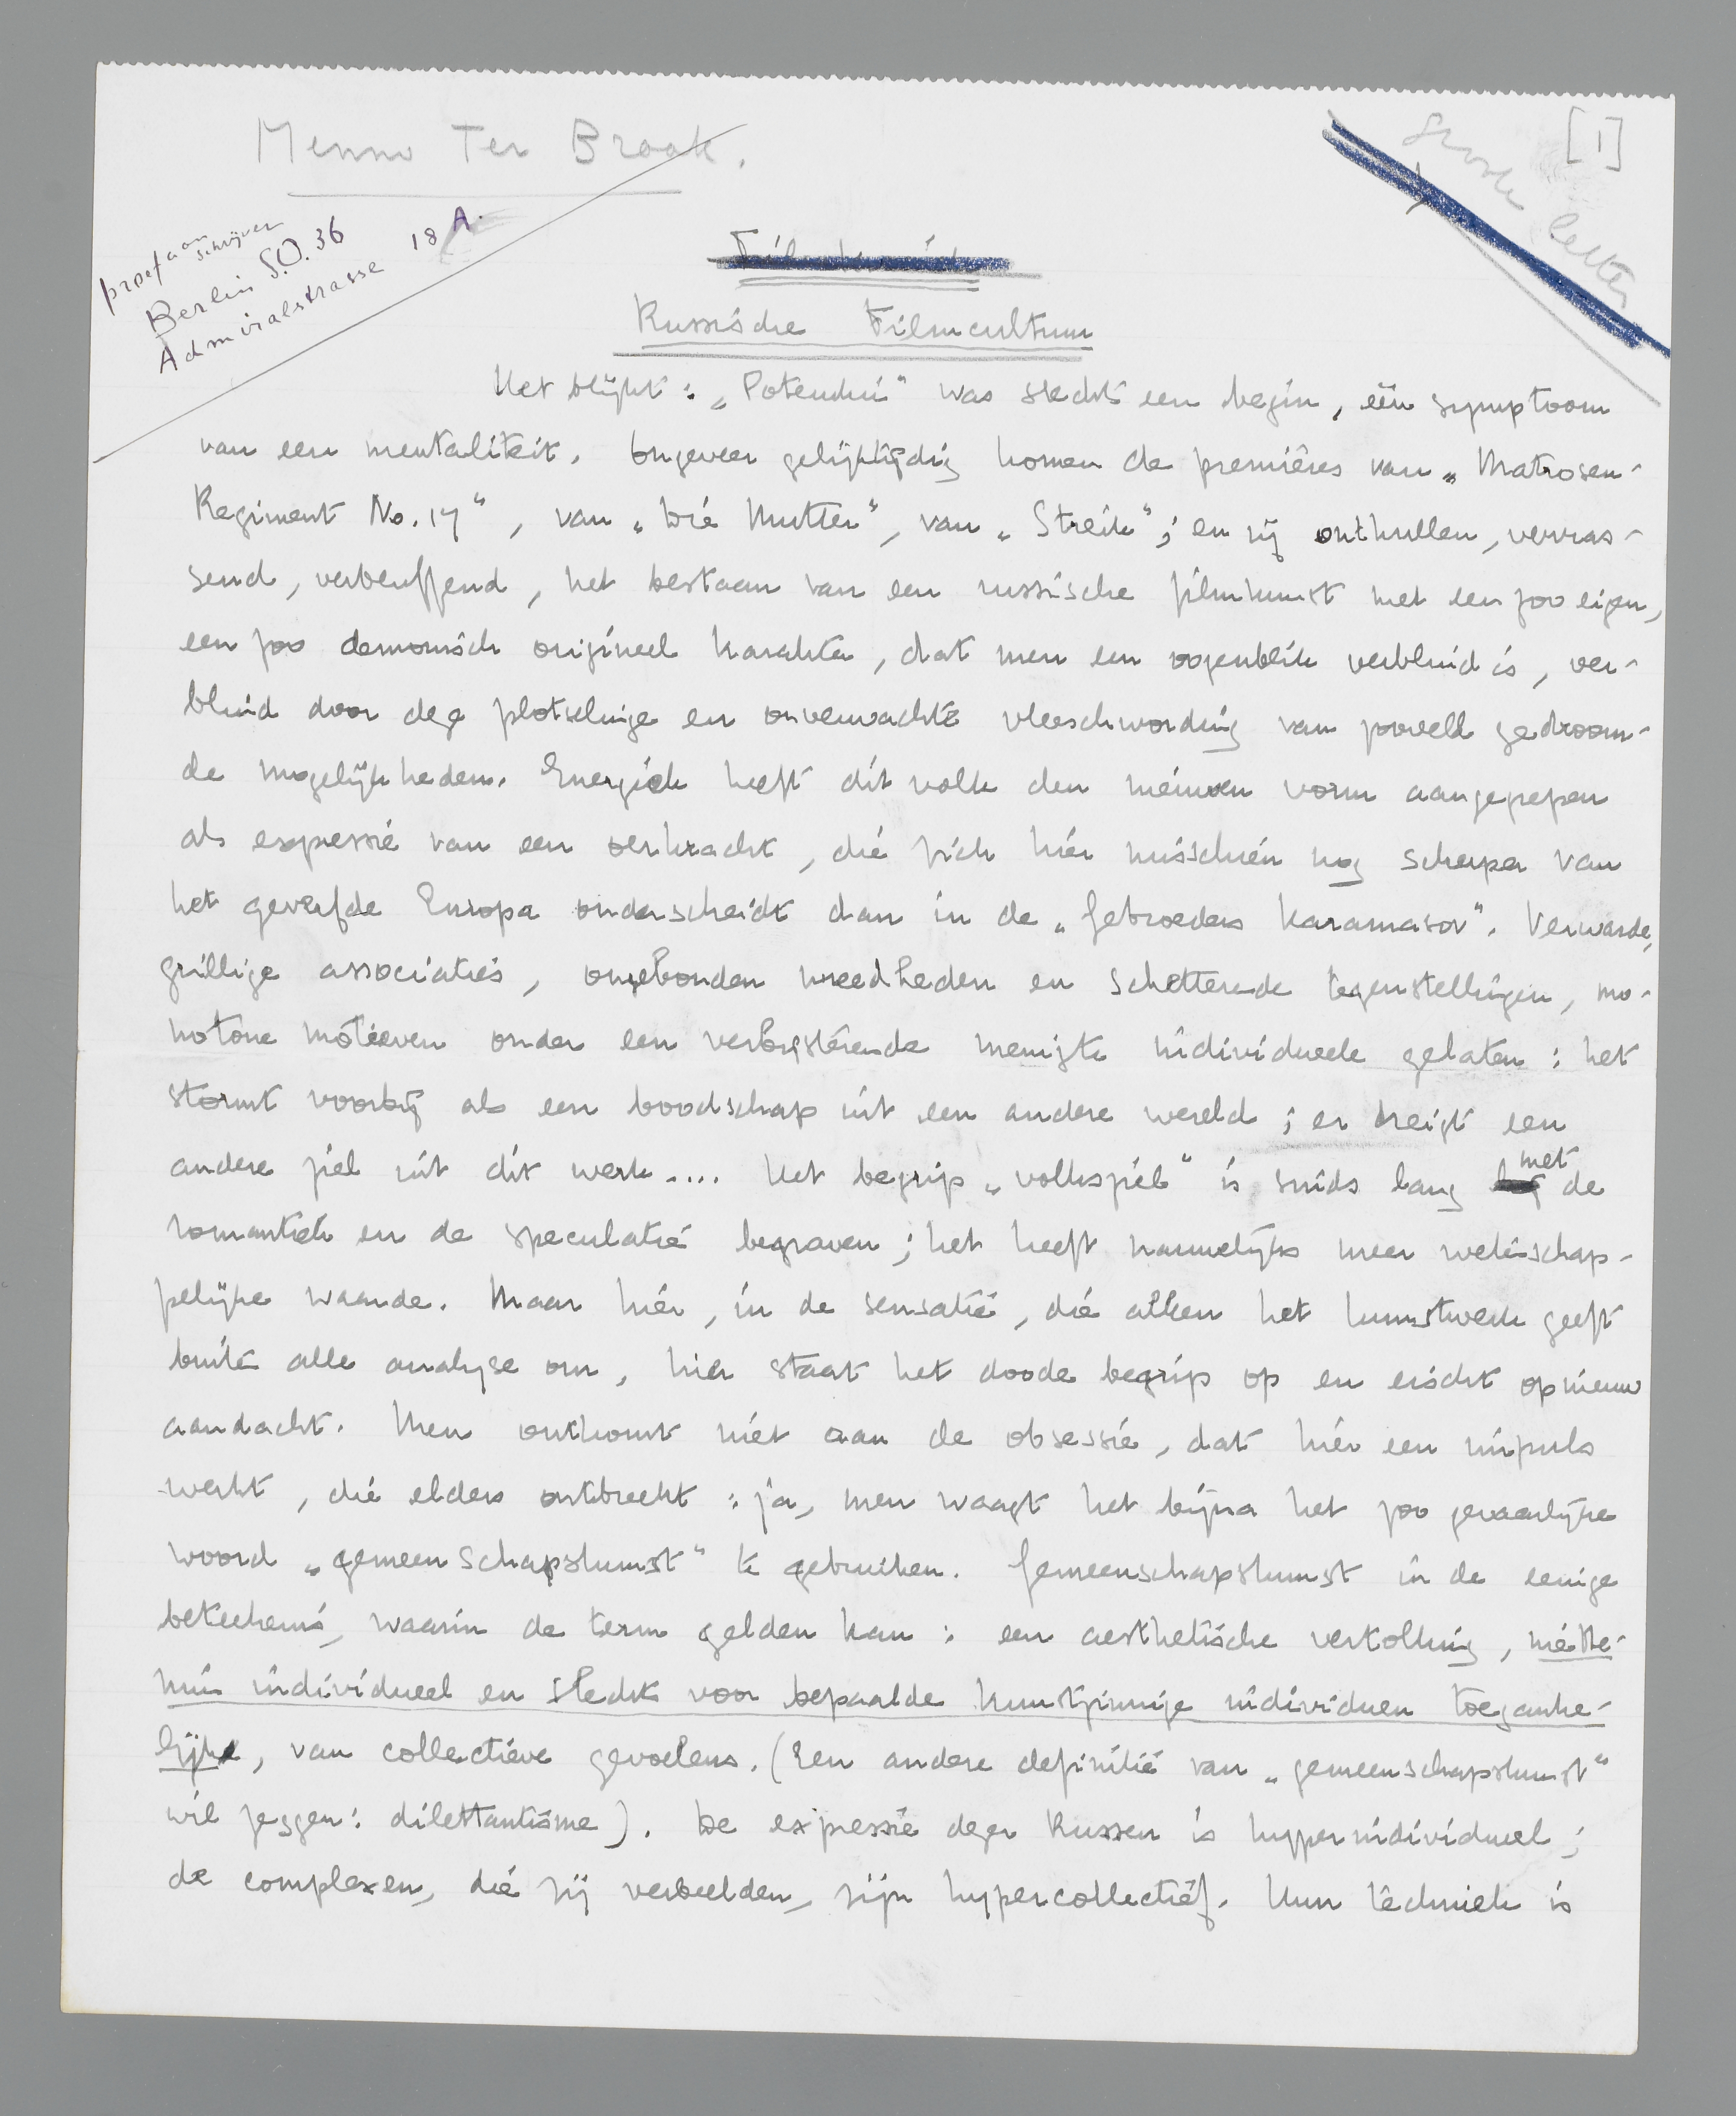 Menno Ter Braak.
[1]
Groote letter
proef aan schrijver
Berlin S.O. 36
Admiralstrasse 18 A.
Russische Filmcultuur
Het blijkt: „Potemkin" was slechts een begin, één symptoom
van een mentaliteit. Ongeveer gelijktijdig komen de premières van „Matrosen-
Regiment No. 17", van „Die Mutter", van „Streik"; en zij onthullen, verras-
send, verbluffend, het bestaan van een russische filmkunst met een zoo eigen,
een zoo demonisch origineel karakter, dat men een oogenblik verblind is, ver-
blind door deze plotselinge en onverwachte vleeschwording van zooveele gedroom-
de mogelijkheden. Energiek heeft dit volk den nieuwen vorm aangegrepen
als expressie van een oerkracht, die zich hier misschien nog scherper van
het geverfde Europa onderscheidt dan in de „Gebroeders Karamasov". Verwarde,
grillige associaties, ongebonden wreedheden en schetterende tegenstellingen, mo-
notone motieven onder een verbijsterende menigte individueele gelaten: het
stormt voorbij als een boodschap uit een andere wereld; er dreigt een
andere ziel uit dit werk.... Het begrip „volksziel" is sinds lang met de
romantiek en de speculatie begraven; het heeft nauwelijks meer wetenschap-
pelijke waarde. Maar hier, in de sensatie, die alleen het kunstwerk geeft
buiten alle analyse om, hier staat het doode begrip op en eischt opnieuw
aandacht. Men ontkomt niet aan de obsessie, dat hier een impuls
werkt, die elders ontbreekt: ja, men waagt het bijna het zoo gevaarlijke
woord „gemeenschapskunst" te gebruiken. Gemeenschapskunst in de eenige
beteekenis, waarin de term gelden kan: een aesthetische vertolking, niette-
min individueel en slechts voor bepaalde kunstzinnige individuen toeganke-
lijk, van collectieve gevoelens. (Een andere definitie van „gemeenschapskunst"
wil zeggen: dilettantisme). De expressie dezer Russen is hyperindividueel;
de complexen, die zij verbeelden, zijn hypercollectief. Hun techniek is